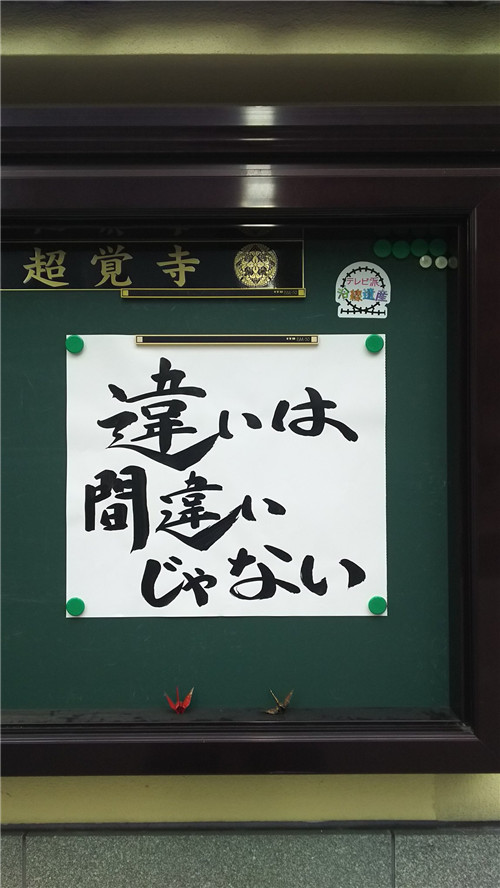 超覚寺
テレビ派
沿線遺産
違いは
間違い
じゃない